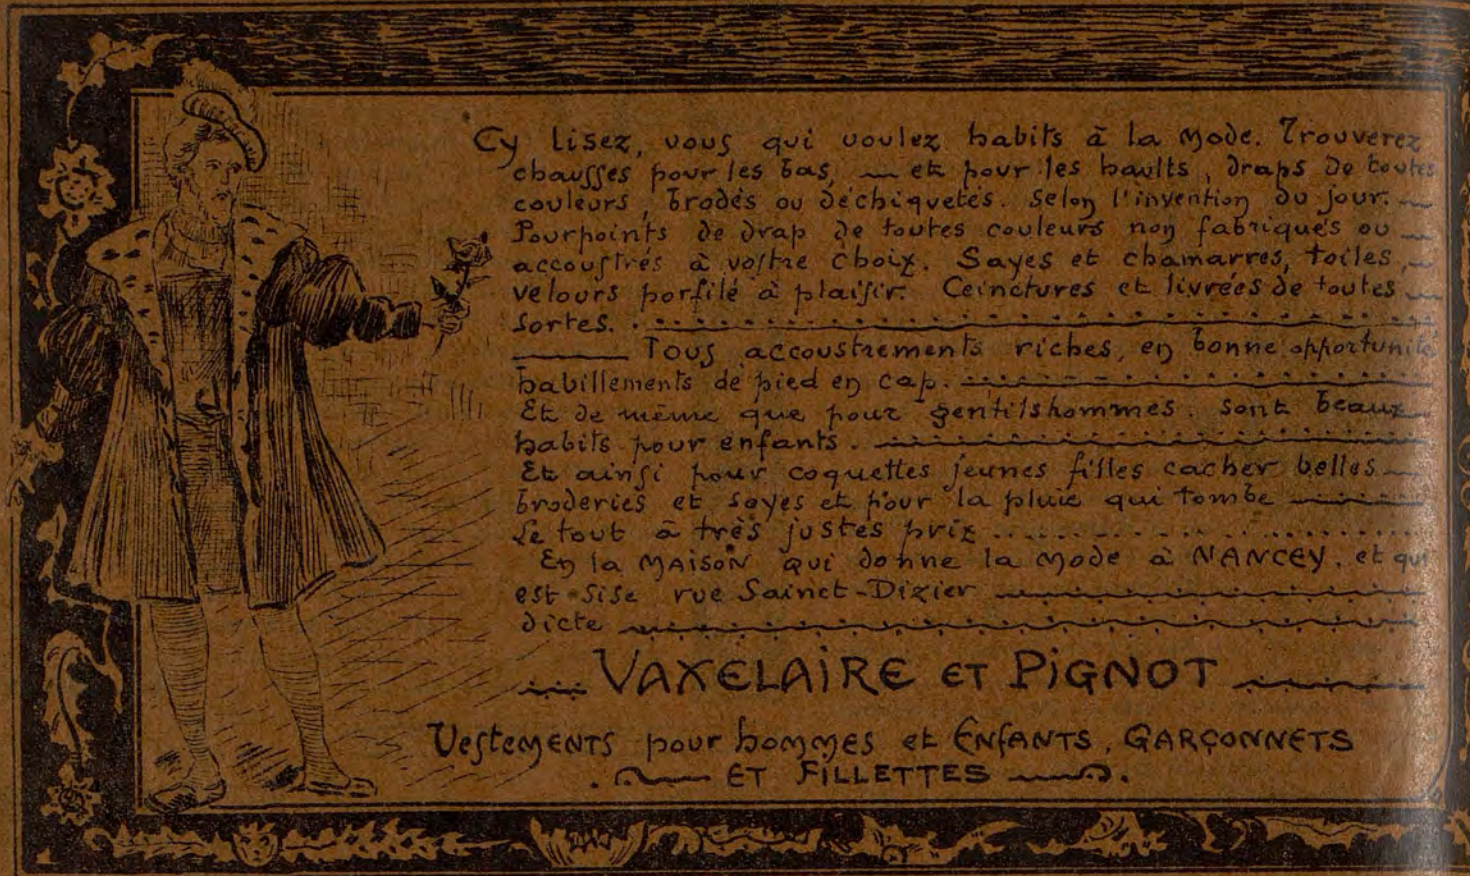 Cy lisez, vous qui voulez habits à la mode. Trouverez
chausses pour les bas, — et pour les haults, draps de toutes
couleurs, brodés ou déchiquetés. Selon l'invention du jour.
Pourpoints de drap de toutes couleurs non fabriqués ou
accoustrés à vostre choix. Sayes et chamarres, toiles,
velours porfilé à plaisir. Ceinctures et livrées de toutes
sortes.
Tous accoustrements riches, en bonne opportunité
habillements de pied en cap.
Et de même que pour gentilshommes. sont beaux
habits pour enfants.
Et ainsi pour coquettes jeunes filles cacher belles
broderies et sayes et pour la pluie qui tombe
Le tout à très justes prix
En la MAISON qui donne la mode à NANCEY, et qui
est sise rue Sainct-Dizier
dicte
VAXELAIRE ET PIGNOT
VestemENTS pour hommes et ENfANTS, GARÇONNETS
ET FILLETTES